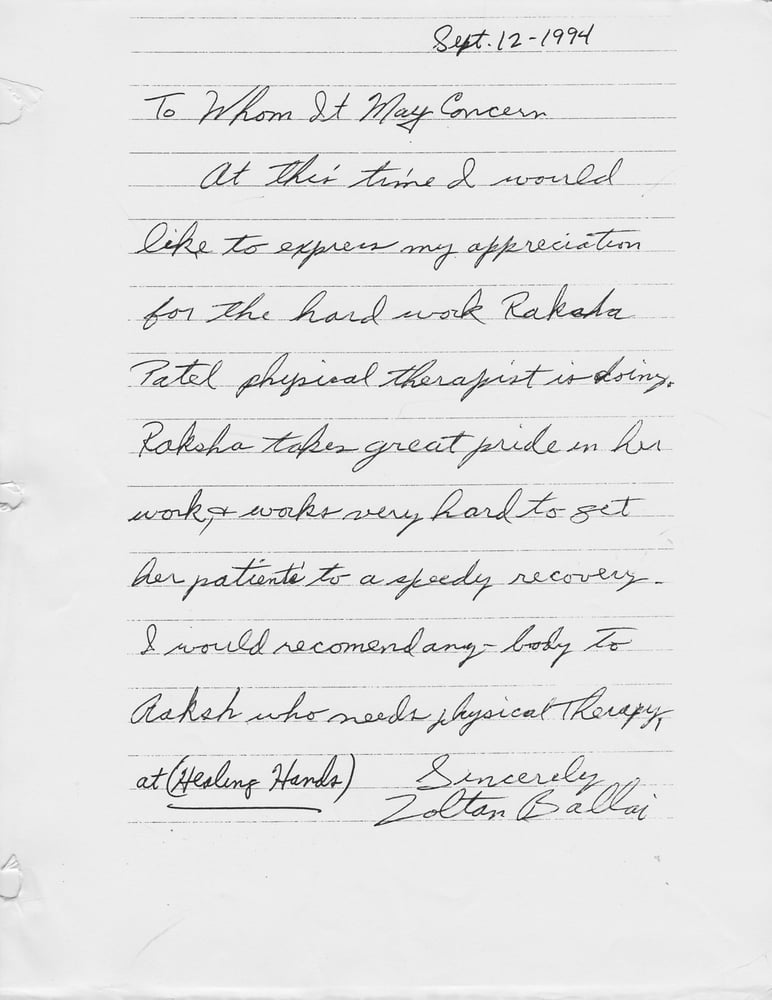 Sept. 12-1994
To Whom It May Concern
At this time I would
like to express my appreciation
for the hard work Raksha
Patel physical therapist is doing.
Raksha takes great pride in her
work, & works very hard to get
her patients to a speedy recovery.
I would recomend any-body to
Raksh who needs physical Therapy,
at (Healing Hands) Sincerely
Zoltan Ballai